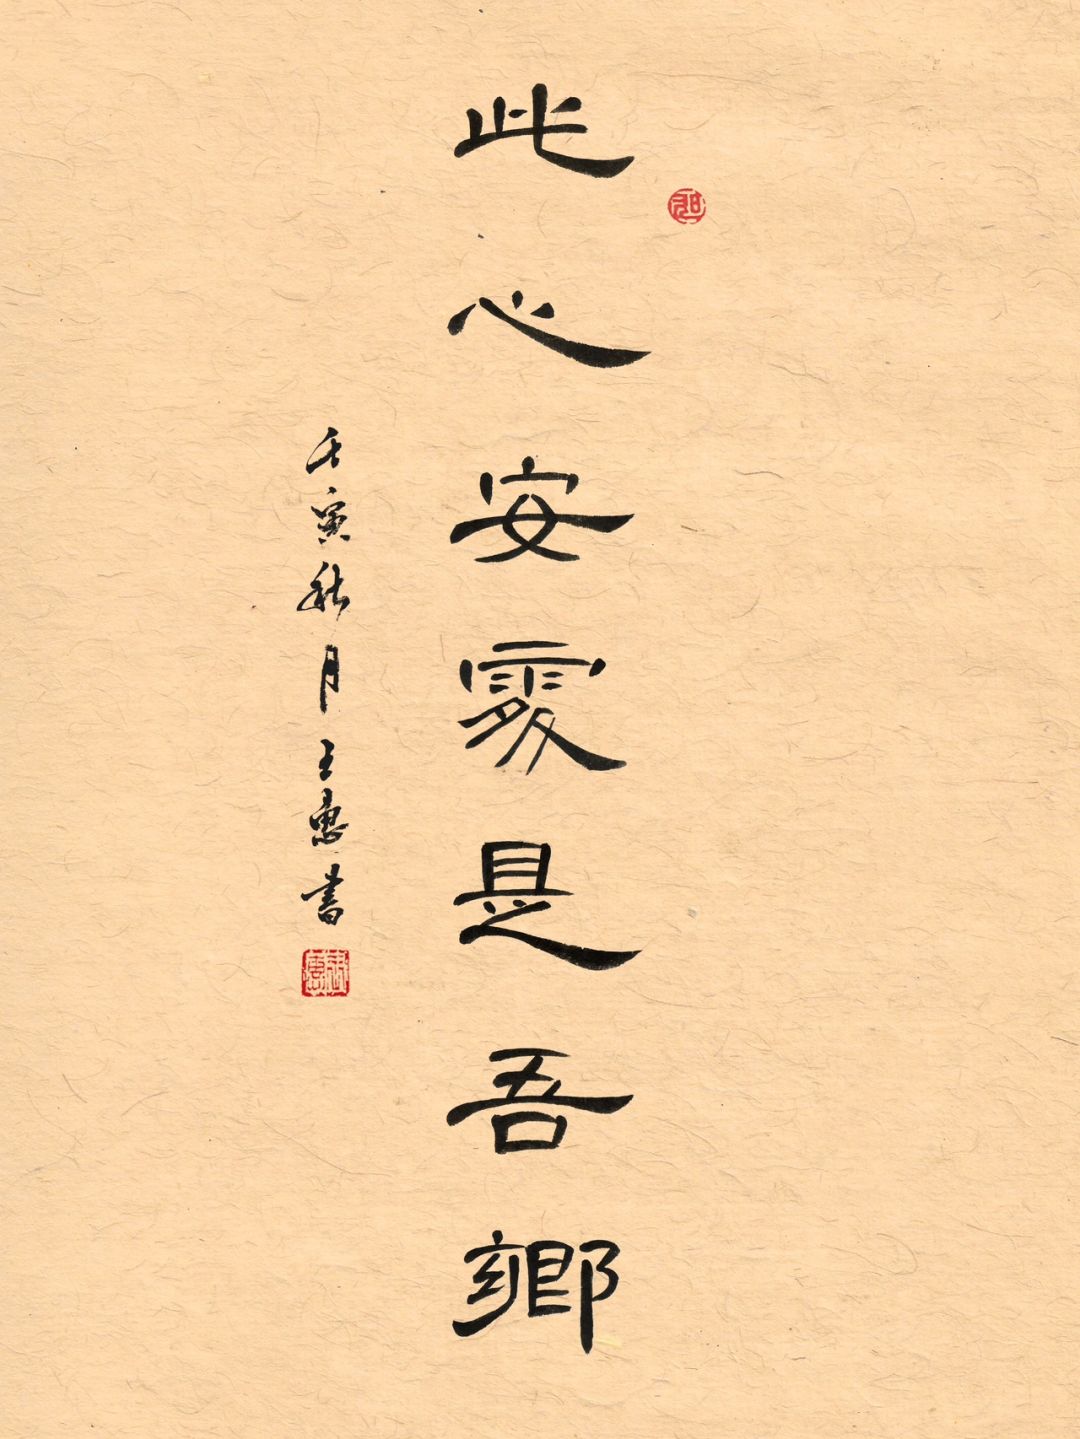 此心安處是吾鄉
壬寅秋月王惠書